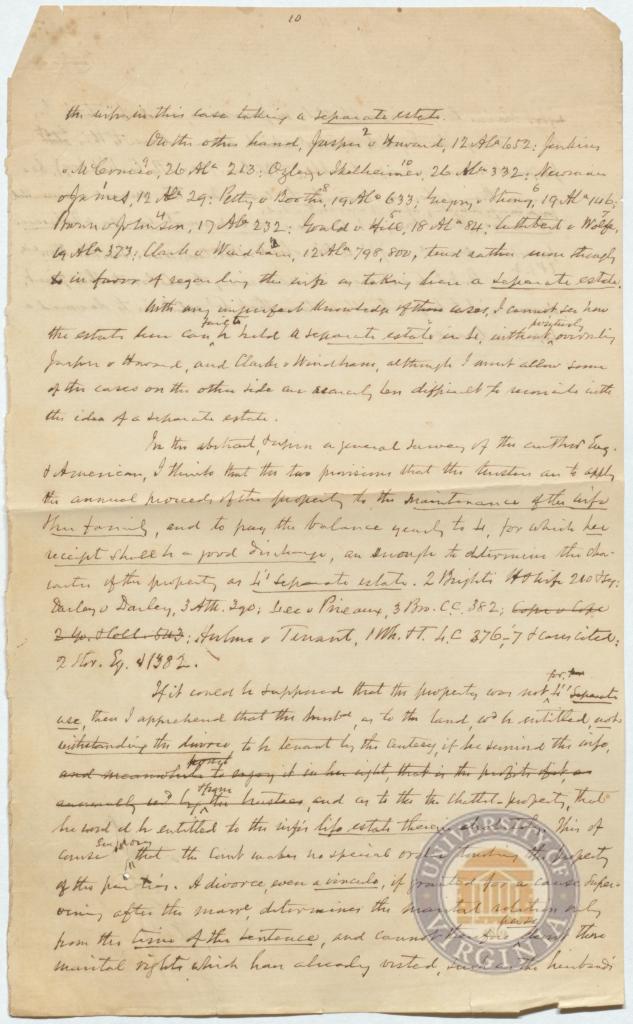 10
the wife in this case taking a separate estate.
On the other hand, Jasper v Howard, 12 Ala 652: Jenkins
v McConico, 26 Ala 213: Ozley v Ikelheimer, 26 Ala 332: Newman
v James, 12 Ala 29: Petty v Booth, 19 Ala 633; Gregory v Strong, 19 Ala 146;
Brown v Johnson, 17 Ala 232; Gould v Hill, 18 Ala 84: Cuthbert v Wolfe,
19 Ala 373; Clark v Windham, 12 Ala 798, 800, tend rather more strongly
to in favor of regarding the wife as taking here a separate estate.
With any imperfect knowledge of these cases, I cannot see how
the estate here can be held a separate estate in L, without positively overruling
Jasper v Howard, and Clarke v Windham, although I must allow some
of the cases on the other side are scarcely less difficult to reconcile with
the idea of a separate estate.
In the abstract, & upon a general survey of the authors Eng.
& American, I think that the two provisions that the trustees are to apply
the annual proceeds of the property to the maintenance of the wife
& her family, and to pay the balance yearly to L, for which her
receipt shall be a good discharge, are enough to determine the cha-
racter of the property as L's separate estate. 2 Bright's H & Wife 210 & seq:
Darley v Darley, 3 Atk. 390; Lee v Prieaux, 3 Bro. C.C. 382; Cope v Cope
2 Yo. & Coll. 543; Hulme v Tenant, 1 Wh. & T. L.C 376,-7 & cases cited:
2 Stor. Eq. § 1382.
If it could be supposed that the property was not for L's separate
use, then I apprehend that the husbd, as to the land wd be entitled not-
withstanding the divorce, to be tenant by the curtesy, if he survived the wife,
and meanwhile to enjoy it in her right, that is the profits
the trustees, and as to the chattel-property, that
he would be entitled to the wife's life estate therein This of
course supposes that the Court makes no special order touching the property
of the parties. A divorce, even a vinculo, if granted for a cause super-
vening after the marre, determines the marital relation only
from the time of the sentence, and cannot those
marital rights which have already vested, such as the husband's
UNIVERSITY OF VIRGINIA